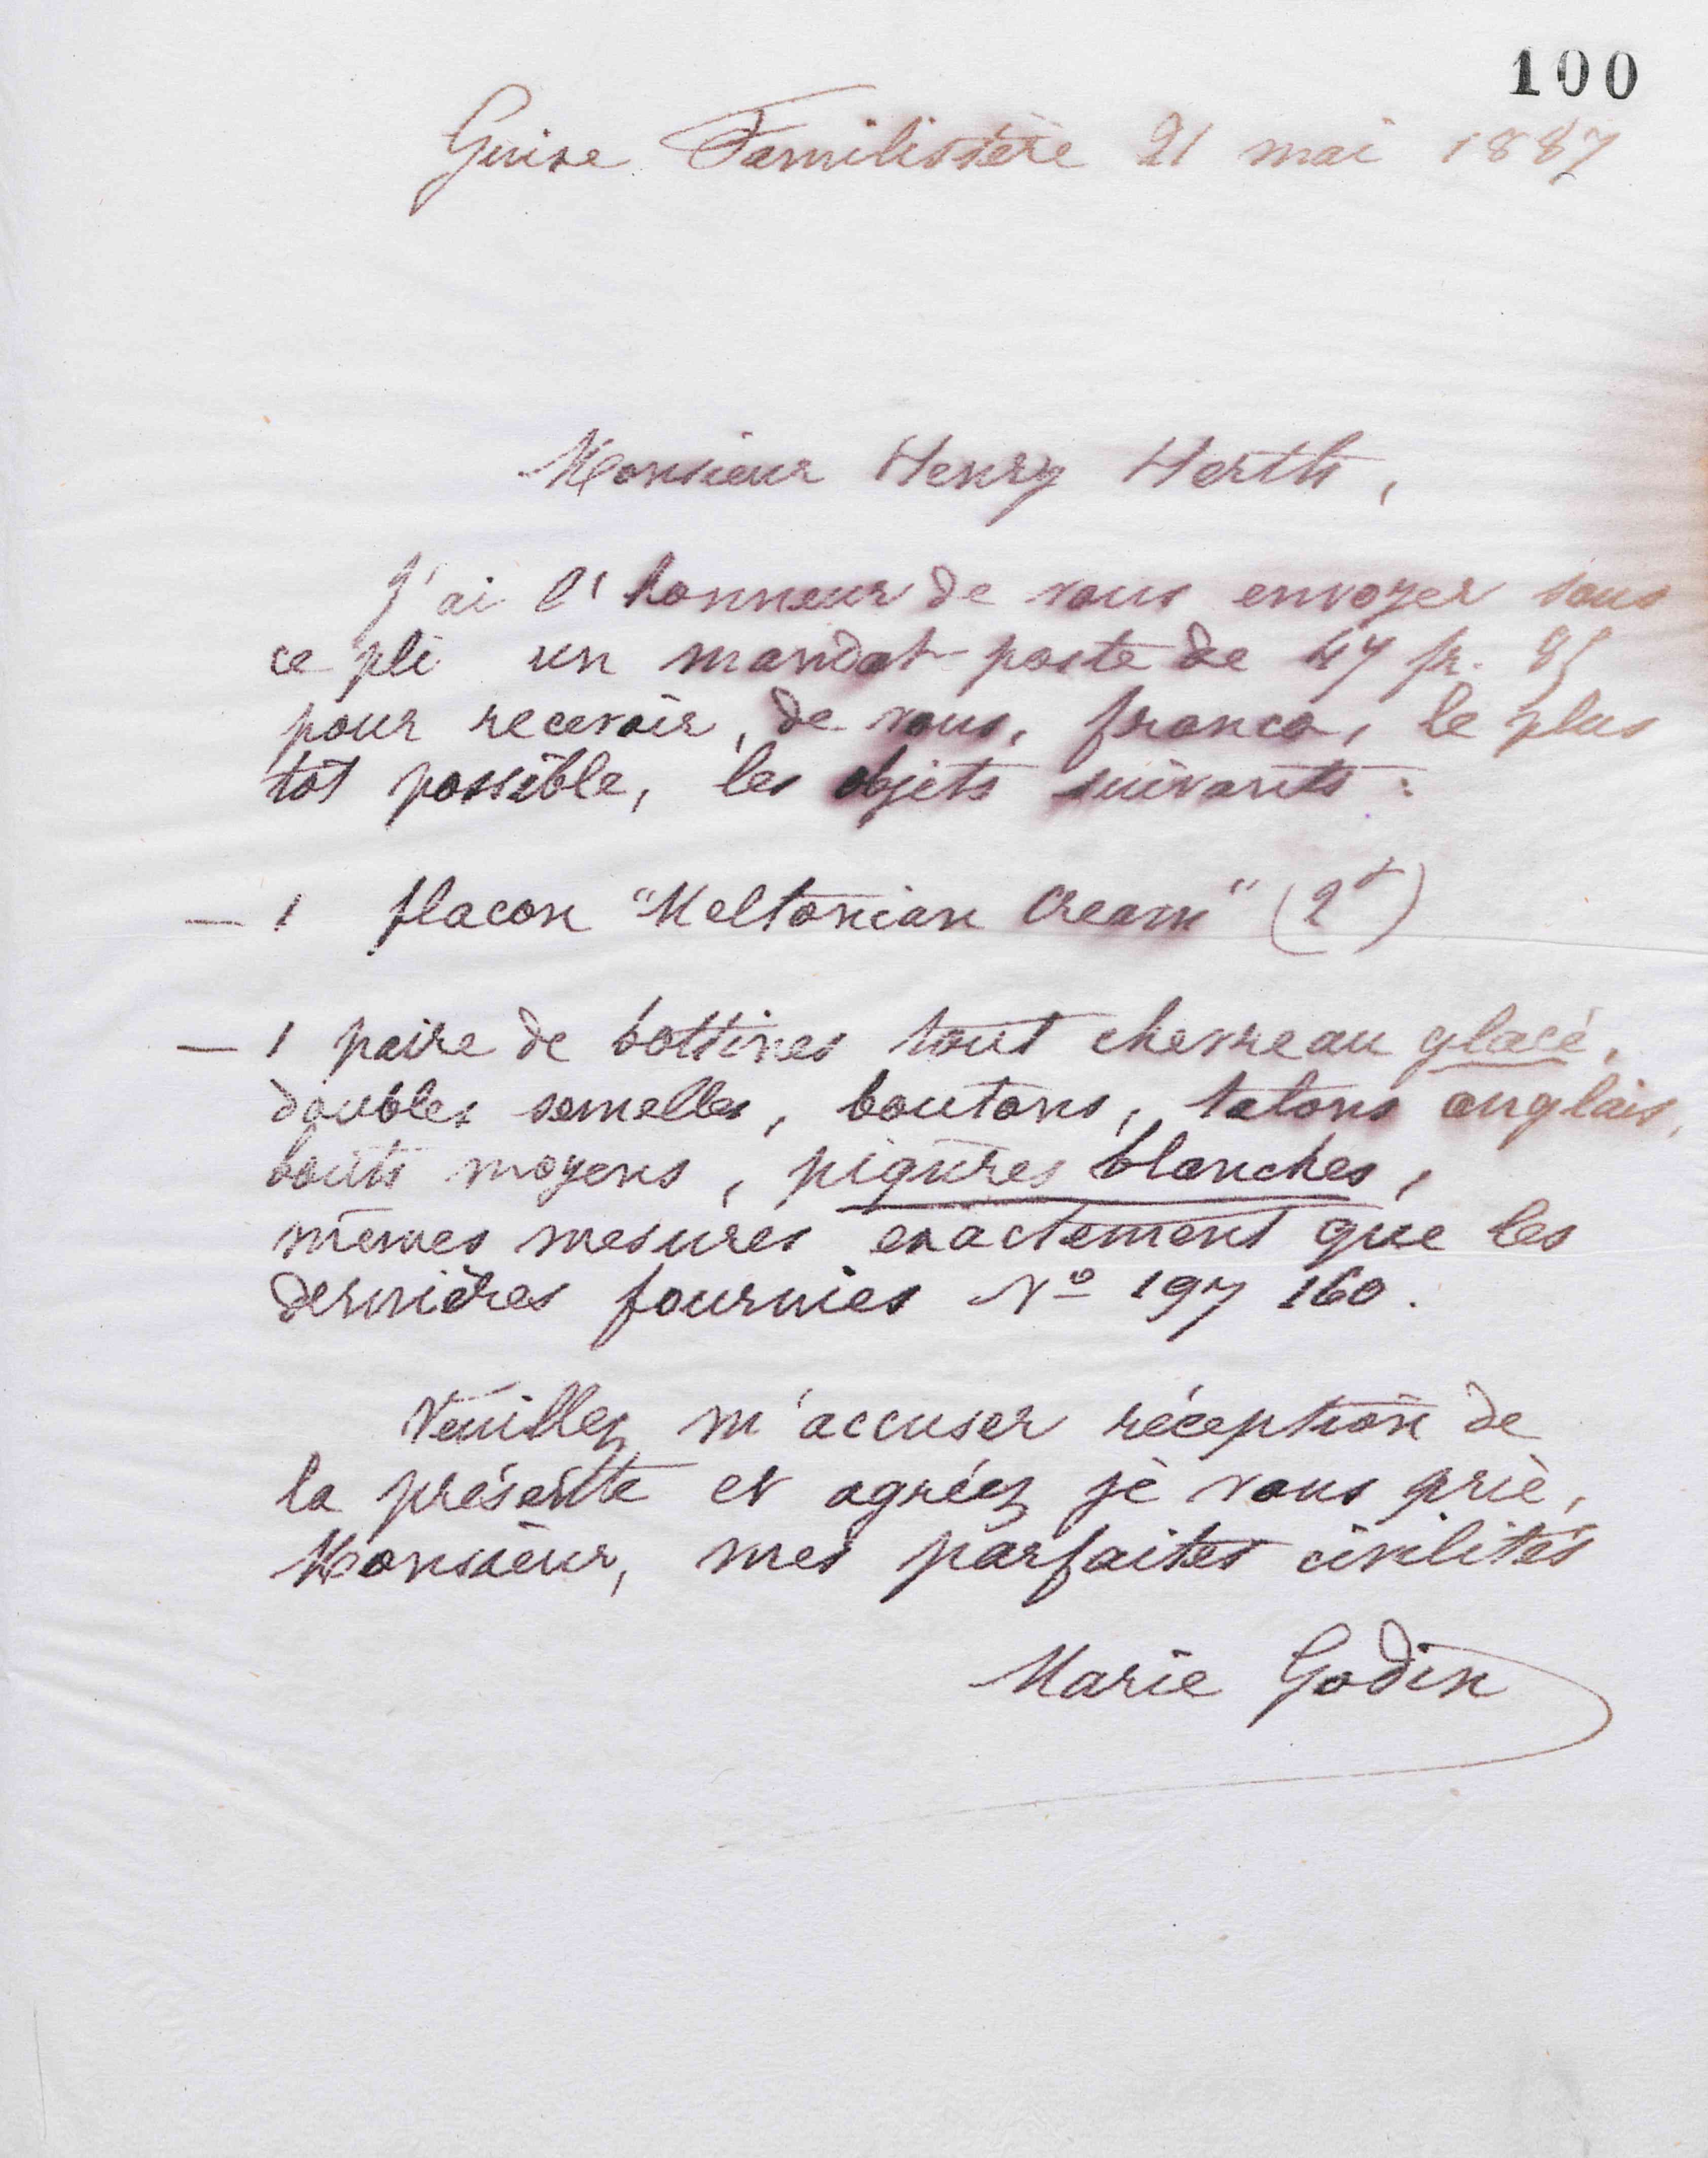 100
Guise Familistère 21 mai 1887
Monsieur Henry Herth,
J'ai l'honneur de vous envoyer sous
ce pli un mandat-poste de 47 fr. 85
pour recevoir, de vous, franco, le plus
tôt possible, les objets suivants :
— 1 flacon "Meltonian Cream" (2f)
— 1 paire de bottines tout chevreau glacé,
doubles semelles, boutons, talons anglais,
bouts moyens, piqûres blanches,
mêmes mesures exactement que les
dernières fournies No 197 160.
Veuillez m'accuser réception de
la présente et agréez je vous prie,
Monsieur, mes parfaites civilités
Marie Godin